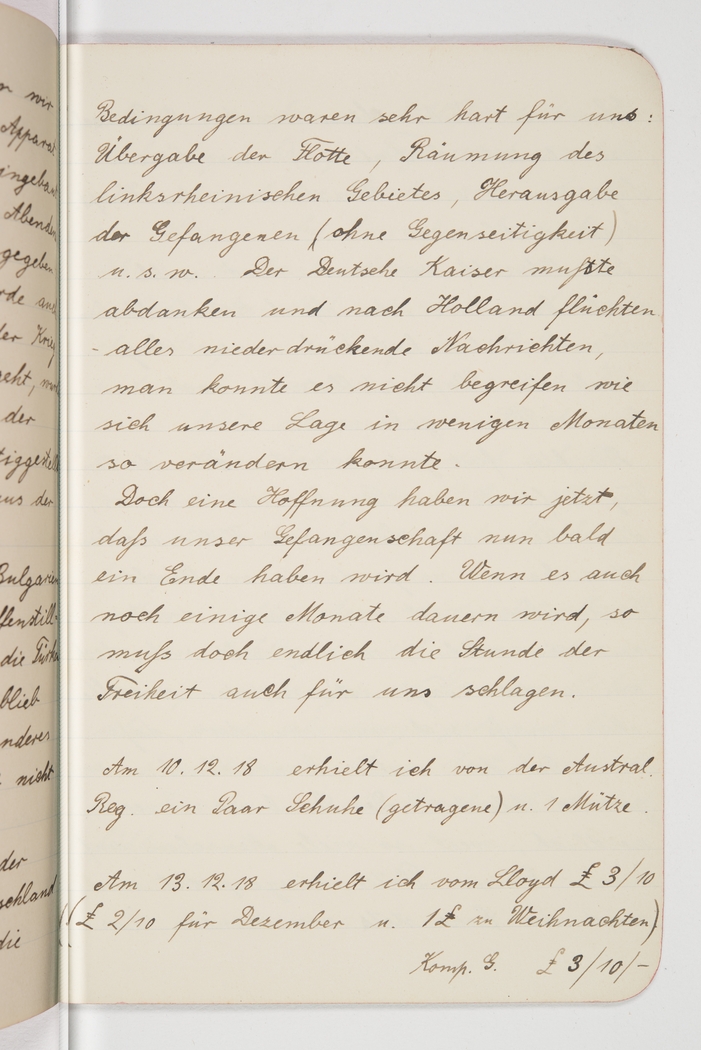 n wir
Apparat
ingebau
Abenden
gegeben
rde auch
der Krieg
geht, wo
der
tiggestell
us der
Bulgarien
ffenstill-
die Türk
blieb
nderes
nicht
der
schland
die
Bedingungen waren sehr hart für uns:
Übergabe der Flotte, Räumung des
linksrheinischen Gebietes, Herausgabe
der Gefangenen (ohne Gegenseitigkeit)
u. s. w. Der Deutsche Kaiser mußte
abdanken und nach Holland flüchten
- alles niederdrückende Nachrichten,
man konnte es nicht begreifen wie
sich unsere Lage in wenigen Monaten
so verändern konnte.
Doch eine Hoffnung haben wir jetzt,
daß unser Gefangenschaft nun bald
ein Ende haben wird. Wenn es auch
noch einige Monate dauern wird, so
muß doch endlich die Stunde der
Freiheit auch für uns schlagen.
Am 10.12.18 erhielt ich von der Austral.
Reg. ein Paar Schuhe (getragene) u. 1 Mütze.
Am 13.12.18 erhielt ich vom Lloyd £ 3/10
((£ 2/10 für Dezember u. 1£ zu Weihnachten)
Komp. G. £ 3/10/-